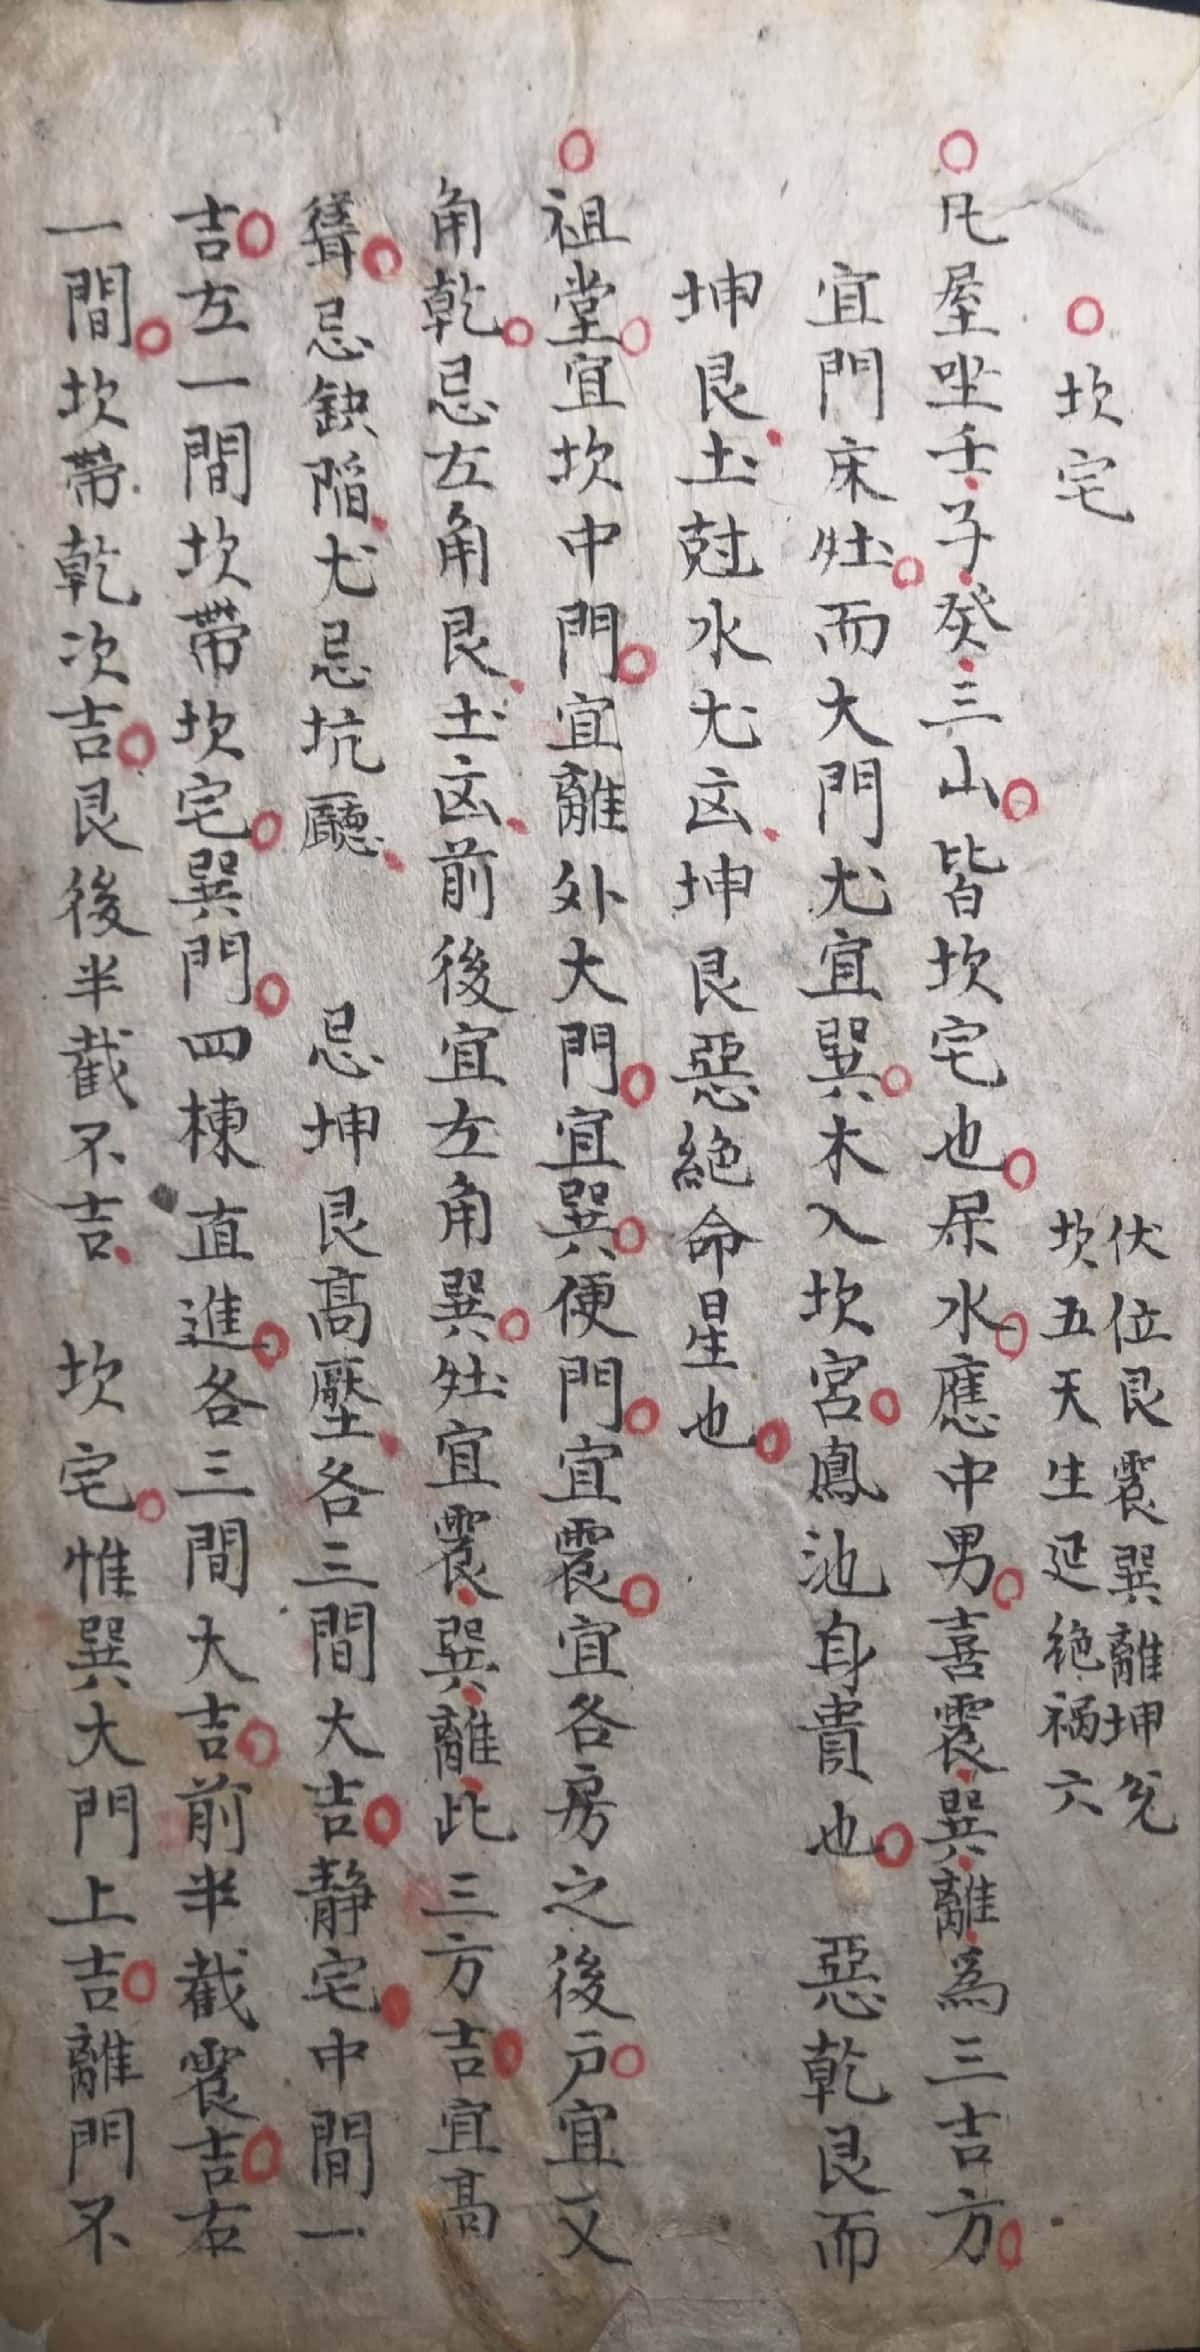 坎宅
伏位艮震巽離坤兌
坎五天生延絶禍六
凡屋坐壬子癸三山皆坎宅也屎水應中男喜震巽離為三吉方
宜門床灶而大門尤宜巽木入坎宮鳳池身貴也 惡乾艮而
坤艮土尅水尤凶坤艮惡絕命星也
祖堂宜坎中門宜離外大門宜巽便門宜震宜各房之後户宜又
角乾忌左角艮土凶前後宜左角巽灶宜震巽離此三方吉宜高
聳忌缺陷尤忌坑廳 忌坤艮高壓各三間大吉靜宅中間一
吉左一間坎帶坎宅巽門四棟直進各三間大吉前半截震吉右
一間坎帶乾次吉艮後半截不吉 坎宅惟巽大門上吉離門不